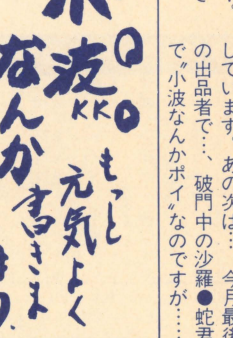 しています。あの次は…　今月最後
の出品者で…、破門中の沙羅●蛇君
で〝小波なんかポイ〟なのですが……
小波
KK
なんか
もっと
元気よく
書きま